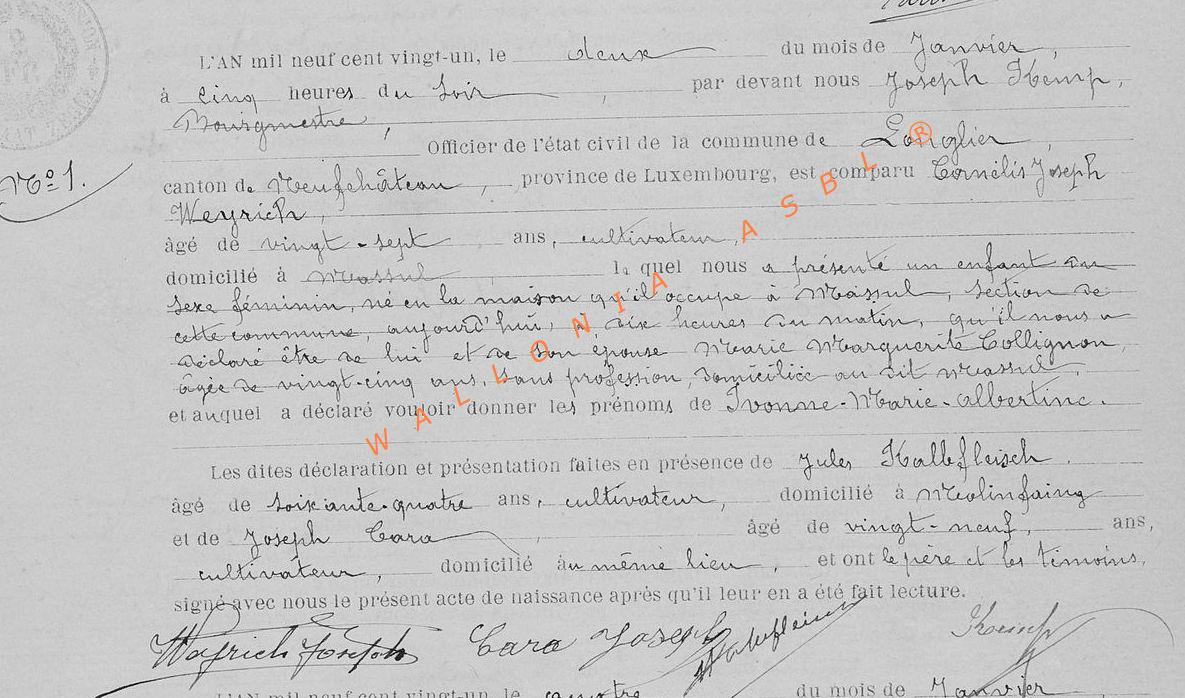 L'AN mil neuf cent vingt-un, le deux du mois de Janvier,
à Cinq heures du Soir, par devant nous Joseph Kemp,
Bourgmestre,
Officier de l'état civil de la commune de Longlier,
N° 1.
canton de Neufchâteau, province de Luxembourg, est comparu Cornélis Joseph
Weyrich,
âgé de vingt-sept ans, cultivateur,
domicilié à Massul, lequel nous a présenté un enfant du
sexe féminin, né en la maison qu'il occupe à Massul, section de
cette commune, aujourd'hui, à dix heures du matin, qu'il nous a
déclaré être de lui et de son épouse Marie Marguerite Collignon,
âgée de vingt-cinq ans, sans profession, domiciliée au dit Massul,
et auquel a déclaré vouloir donner les prénoms de Ivonne-Marie-Albertine.
WALLONIA ASBL ®
Les dites déclaration et présentation faites en présence de Jules Kalbfleisch,
âgé de soixante-quatre ans, cultivateur, domicilié à Molinfaing
et de Joseph Cara, âgé de vingt-neuf, ans,
cultivateur, domicilié au même lieu, et ont le père et les témoins,
signé avec nous le présent acte de naissance après qu'il leur en a été fait lecture.
Weyrich Joseph Cara Joseph Kalbfleisch Kemp
L'AN mil neuf cent vingt-un, le quatre du mois de Janvier